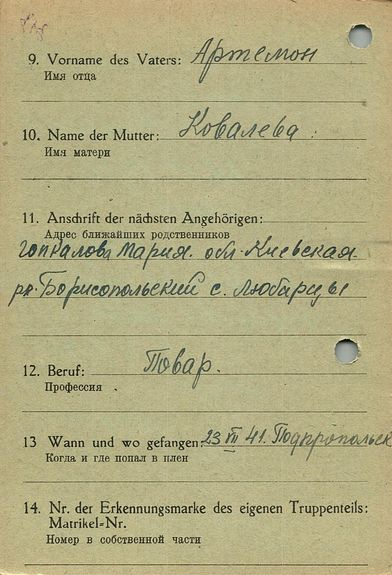 9. Vorname des Vaters: Артемон
Имя отца
10. Name der Mutter: Ковалева
Имя матери
11. Anschrift der nächsten Angehörigen:
Адрес ближайших родственников
Гопкалова Мария. обл. Киевская
рн. Борисопольский с. Любарцы
12. Beruf: Повар.
Профессия
13 Wann und wo gefangen: 23 VII 41.
Когда и где попал в плен
14. Nr. der Erkennungsmarke des eigenen Truppenteils:
Matrikel-Nr.
Номер в собственной части